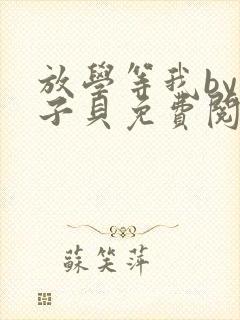 放學等我by
子貝免費閱
蘇笑萍